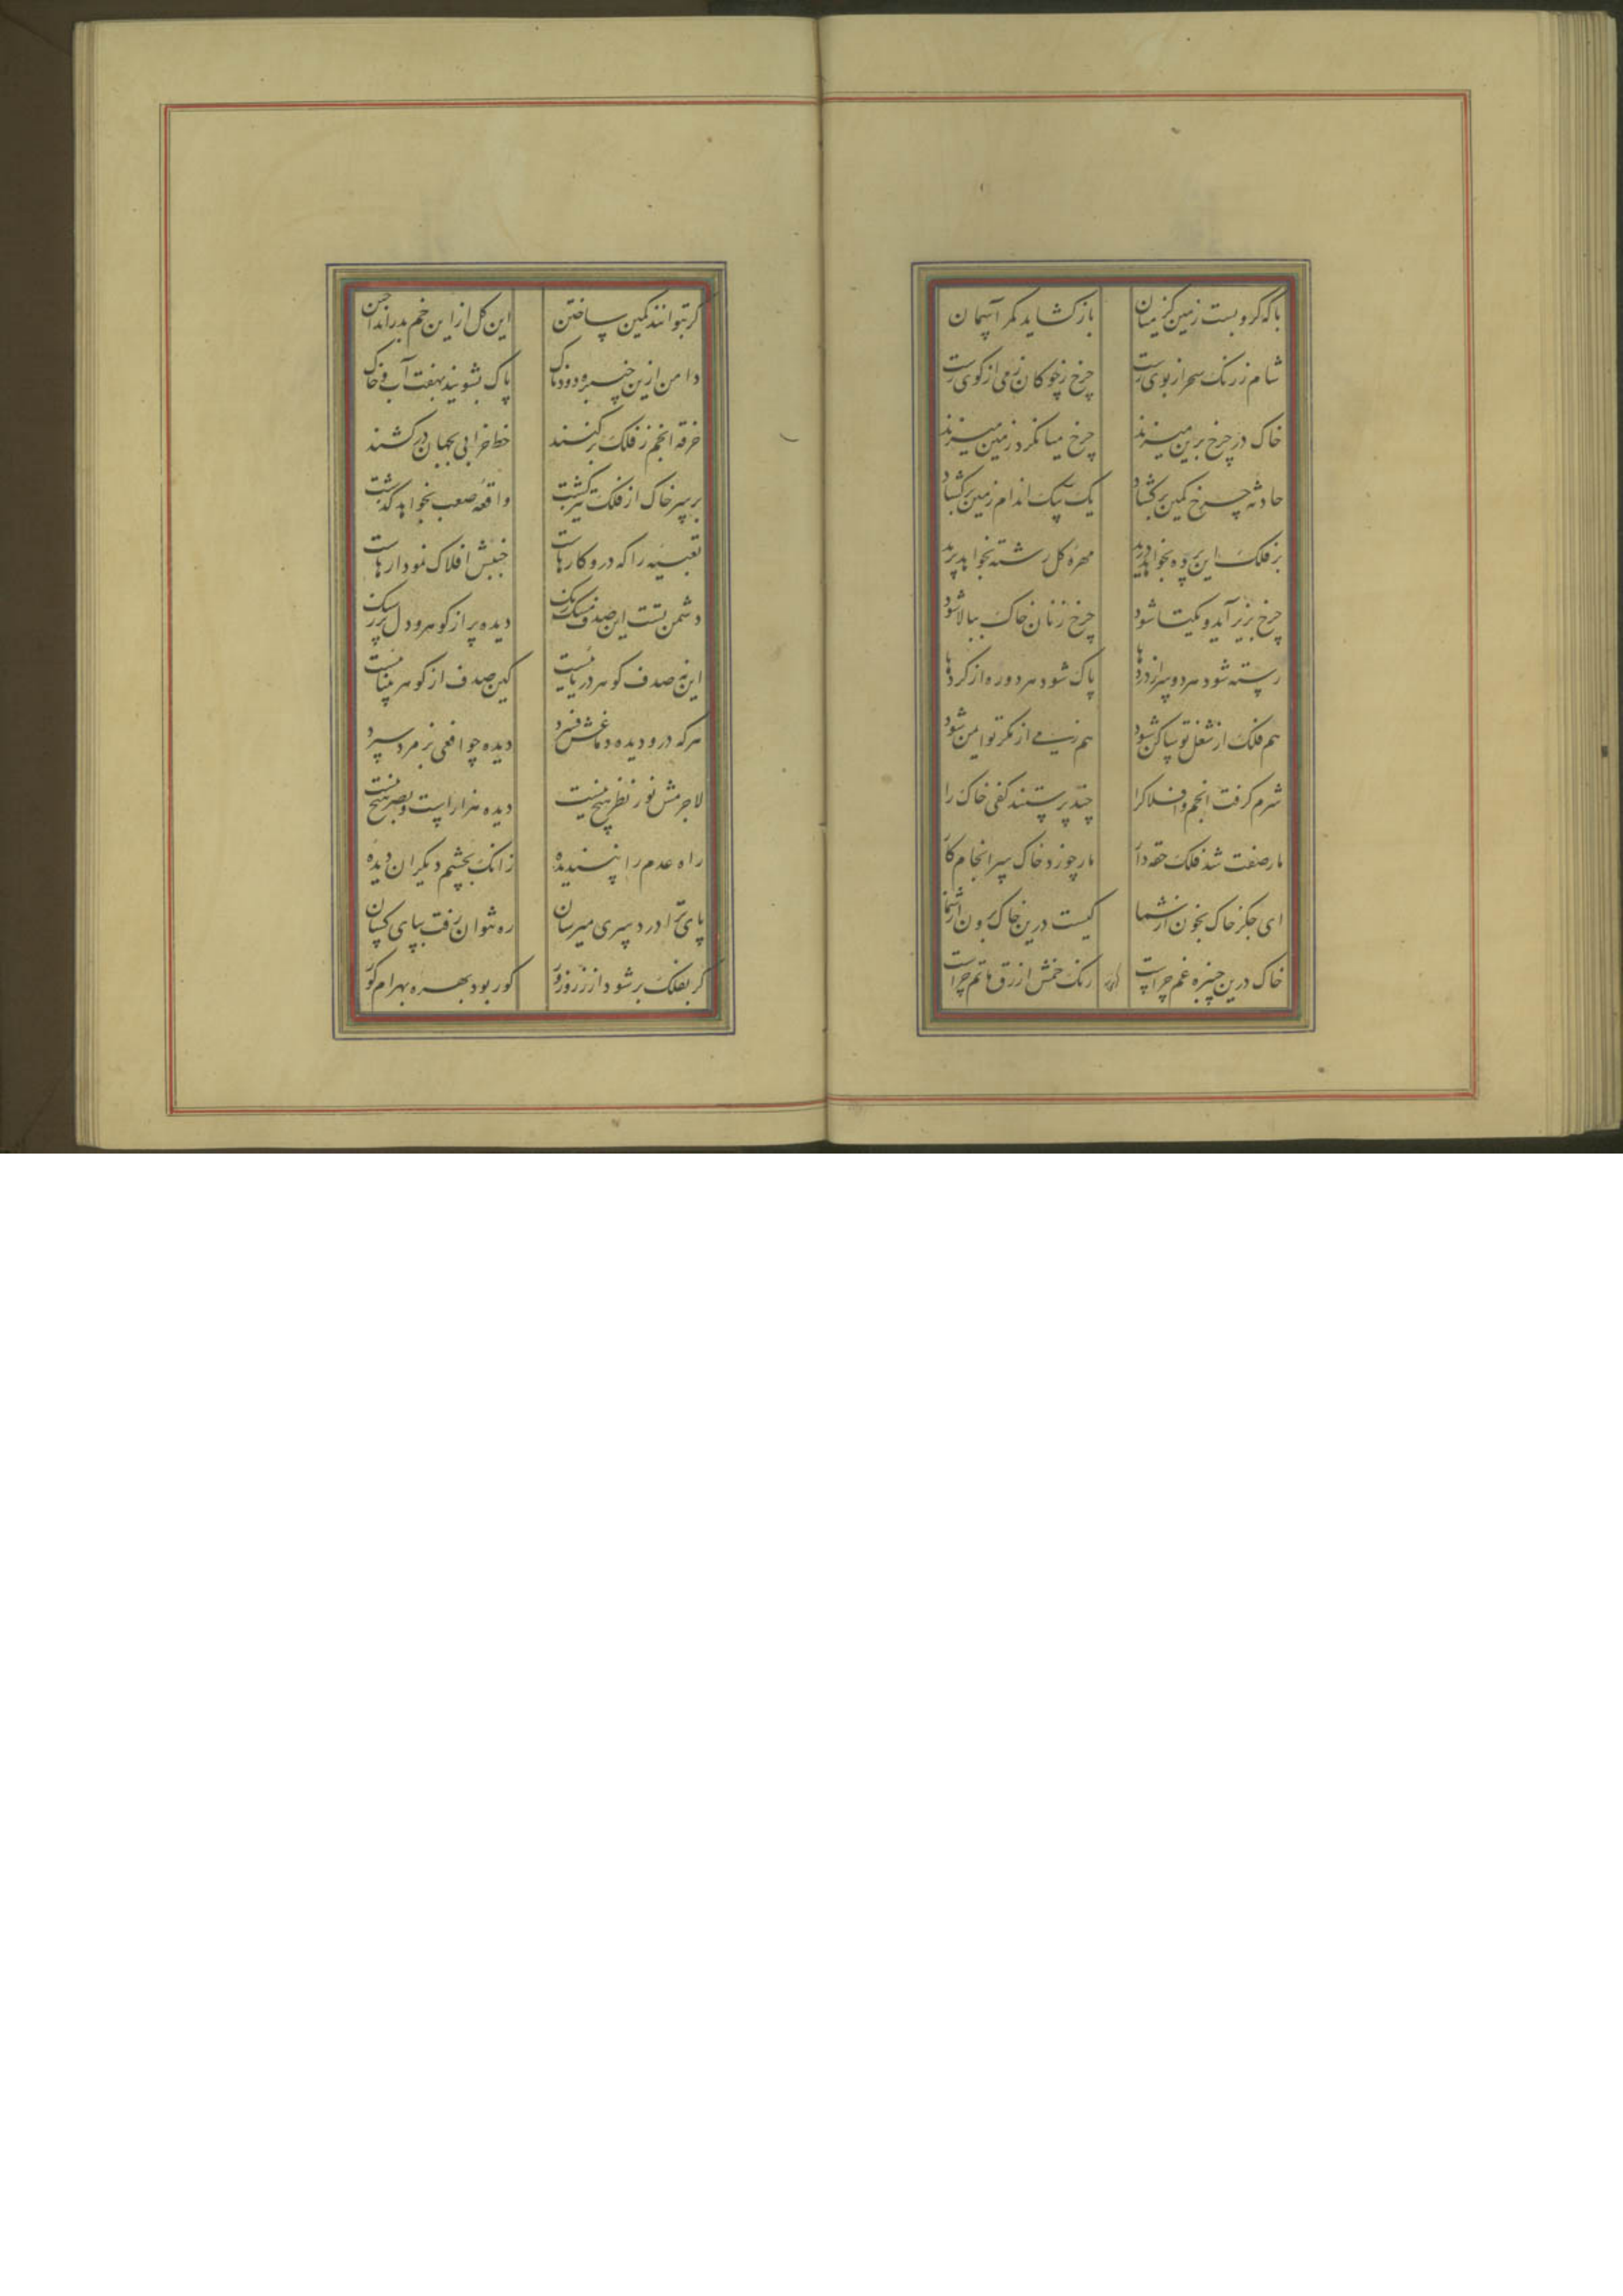 با که کرو بست زمین کز میان بازکشاید کمر آسمان
شام ز رنک سحر از بوی رست چرخ ز چوکان زمی از کوی رست
خاک در چرخ برین میزند چرخ میان کرد زمین میزند
حادثه چرخ کمین برکشاد یک بیک اندام زمین برکشاد
بر فلک این پرده بخواهد درید مهره کل رشته بخواهد برید
چرخ بزیر آید و یکتا شود چرخ زنان خاک ببالا شود
رسته شود هر دو سر از درد ما پاک شود هر دو ره از کرد ما
هم فلک از شغل تو ساکن شود هم زمی از مکر تو ایمن شود
شرم کرفت انجم و افلاک را چند پرستند کفی خاک را
مار صفت شد فلک حقه دار مار خورد خاک سرانجام کار
ای جکر خاک بخون از شما کیست درین خاک برون از شما
خاک درین چنبره غم چراست رنک خمش ازرق ماتم چراست
کر بتوانند کمین ساختن این کل ازاین خم بدر انداختن
دامن ازین چنبره دودناک پاک بشویند بهفت آب و خاک
خرقه انجم ز فلک برکنند خط خرابی بجهان درکشند
بر سر خاک از فلک تیز کشت واقعه صعب بخواهد کذشت
تعبیه را که درو کارهاست جنبش افلاک نمودارهاست
دشمن تست این صدف مشک رنک دیده پر از کوهر و دل پر ز سنک
این نه صدف کوهر دریاییست کین صدف از کوهر بیناییست
هر که درو دیده دماغش فسرد دیده چو افعی بزمرد سپرد
لاجرمش نور نظر هیچ نیست دیده هزار است و بصر هیچ نیست
راه عدم را نپسندیده زانک بچشم دیکران دیده
پای ترا درد سری میرسان ره نتوان رفت بپای کسان
کر بفلک برشود از زر و زور کور بود بهره بهرام کور